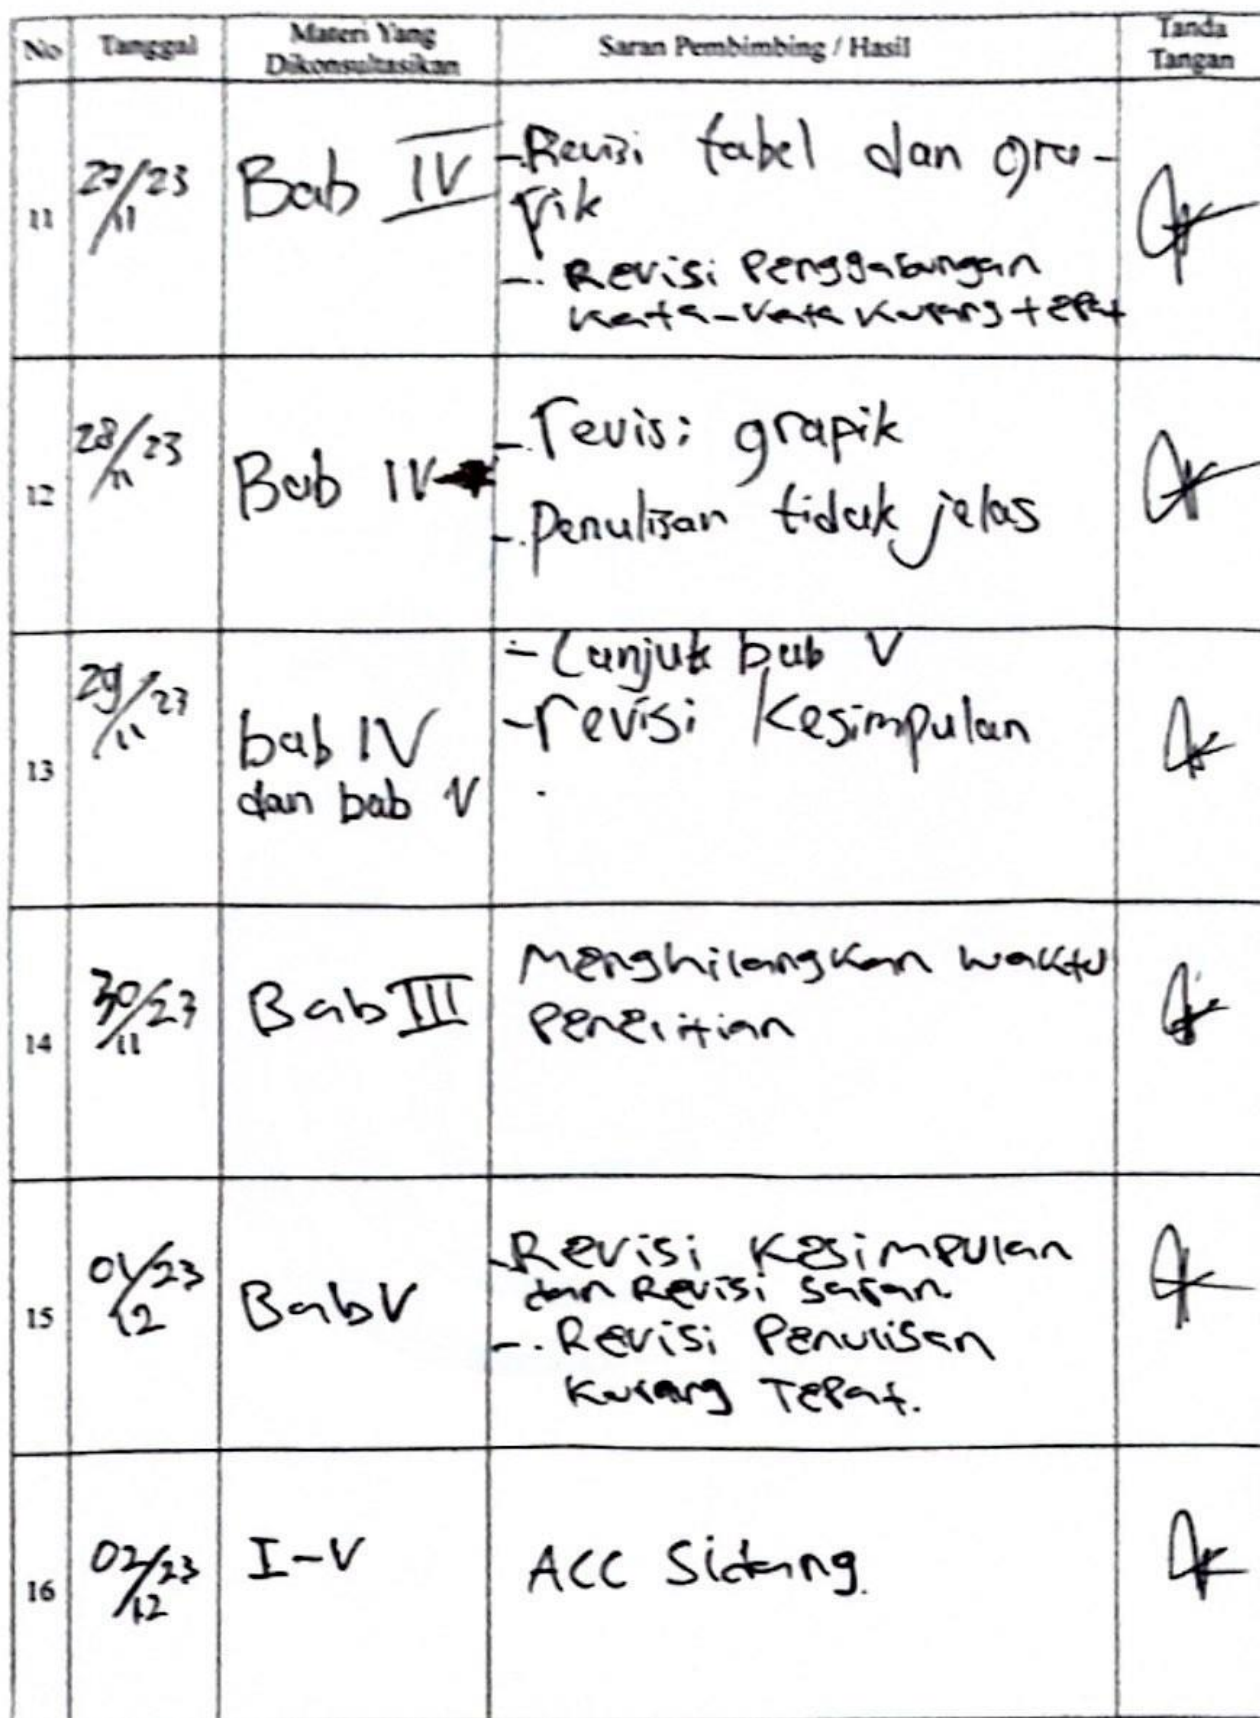 No Tanggal Materi Yang Dikonsultasikan Saran Pembimbing / Hasil Tanda Tangan
11 27/11/23 Bab IV
- Revisi tabel dan gra-
pik
- Revisi Penggabungan
kata-kata kurang tepat
12 28/11/23 Bab IV
- revisi grapik
- penulisan tidak jelas
13 29/11/23 bab IV
dan bab V
- Lanjut bab V
- revisi kesimpulan
14 30/11/23 Bab III
Menghilangkan waktu
Penelitian
15 01/12/23 Bab V
- Revisi Kesimpulan
dan Revisi saran
- Revisi Penulisan
Kurang Tepat.
16 02/12/23 I-V ACC Sidang.